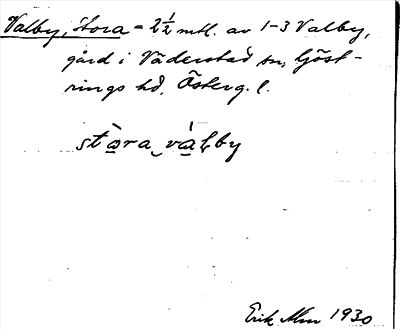 Valby, Stora = 2½ mtl. av 1-3 Valby,
gård i Väderstad sn, Göst-
rings hd, Österg. l.
stòra válby
Erik Alm 1930